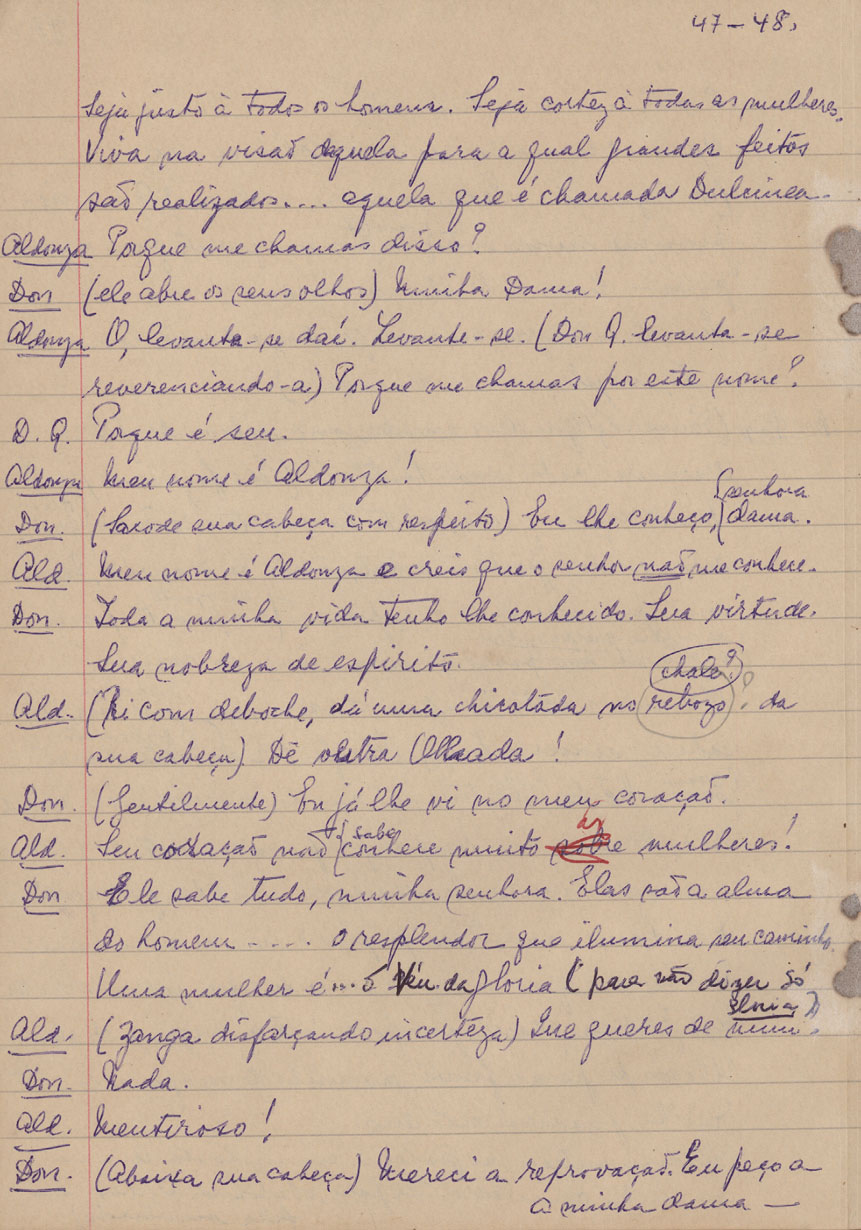 47-48.
Seja justo à todos os homens. Seja cortez à todas as mulheres.
Viva na visão daquela para a qual grandes feitos
são realizados.... aquela que é chamada Dulcinea.
Aldonza Porque me chamas disso?
Don (ele abre os seus olhos) Minha Dama!
Aldonza O, levanta-se daí. Levante-se. (Don Q. levanta-se
reverenciando-a) Porque me chamas por este nome?
D. Q. Porque é seu.
Aldonza Meu nome é Aldonza!
senhora
Don. (Sacode sua cabeça com respeito) Eu lhe conheço, dama.
Ald. Meu nome é Aldonza e creio que o senhor não me conhece.
Don. Toda a minha vida tenho lhe conhecido. Sua virtude.
Sua nobreza de espirito.
chale?
Ald. (Ri com deboche, dá uma chicotada no rebozo? da
sua cabeça) Dê outra Olhada!
Don. (Gentilmente) Eu já lhe vi no meu coração.
sabe as
Ald. Seu coração não conhece muito sobre mulheres!
Don Ele sabe tudo, minha senhora. Elas são a alma
do homem ---- o resplendor que ilumina seu caminho.
Uma mulher é... é da gloria (para não dizer só
gloria)
Ald. (Zanga disfarçando incerteza) Que queres de mim?
Don. Nada.
Ald. Mentiroso!
Don. (Abaixa sua cabeça) Mereci a reprovação. Eu peço a
a minha dama —